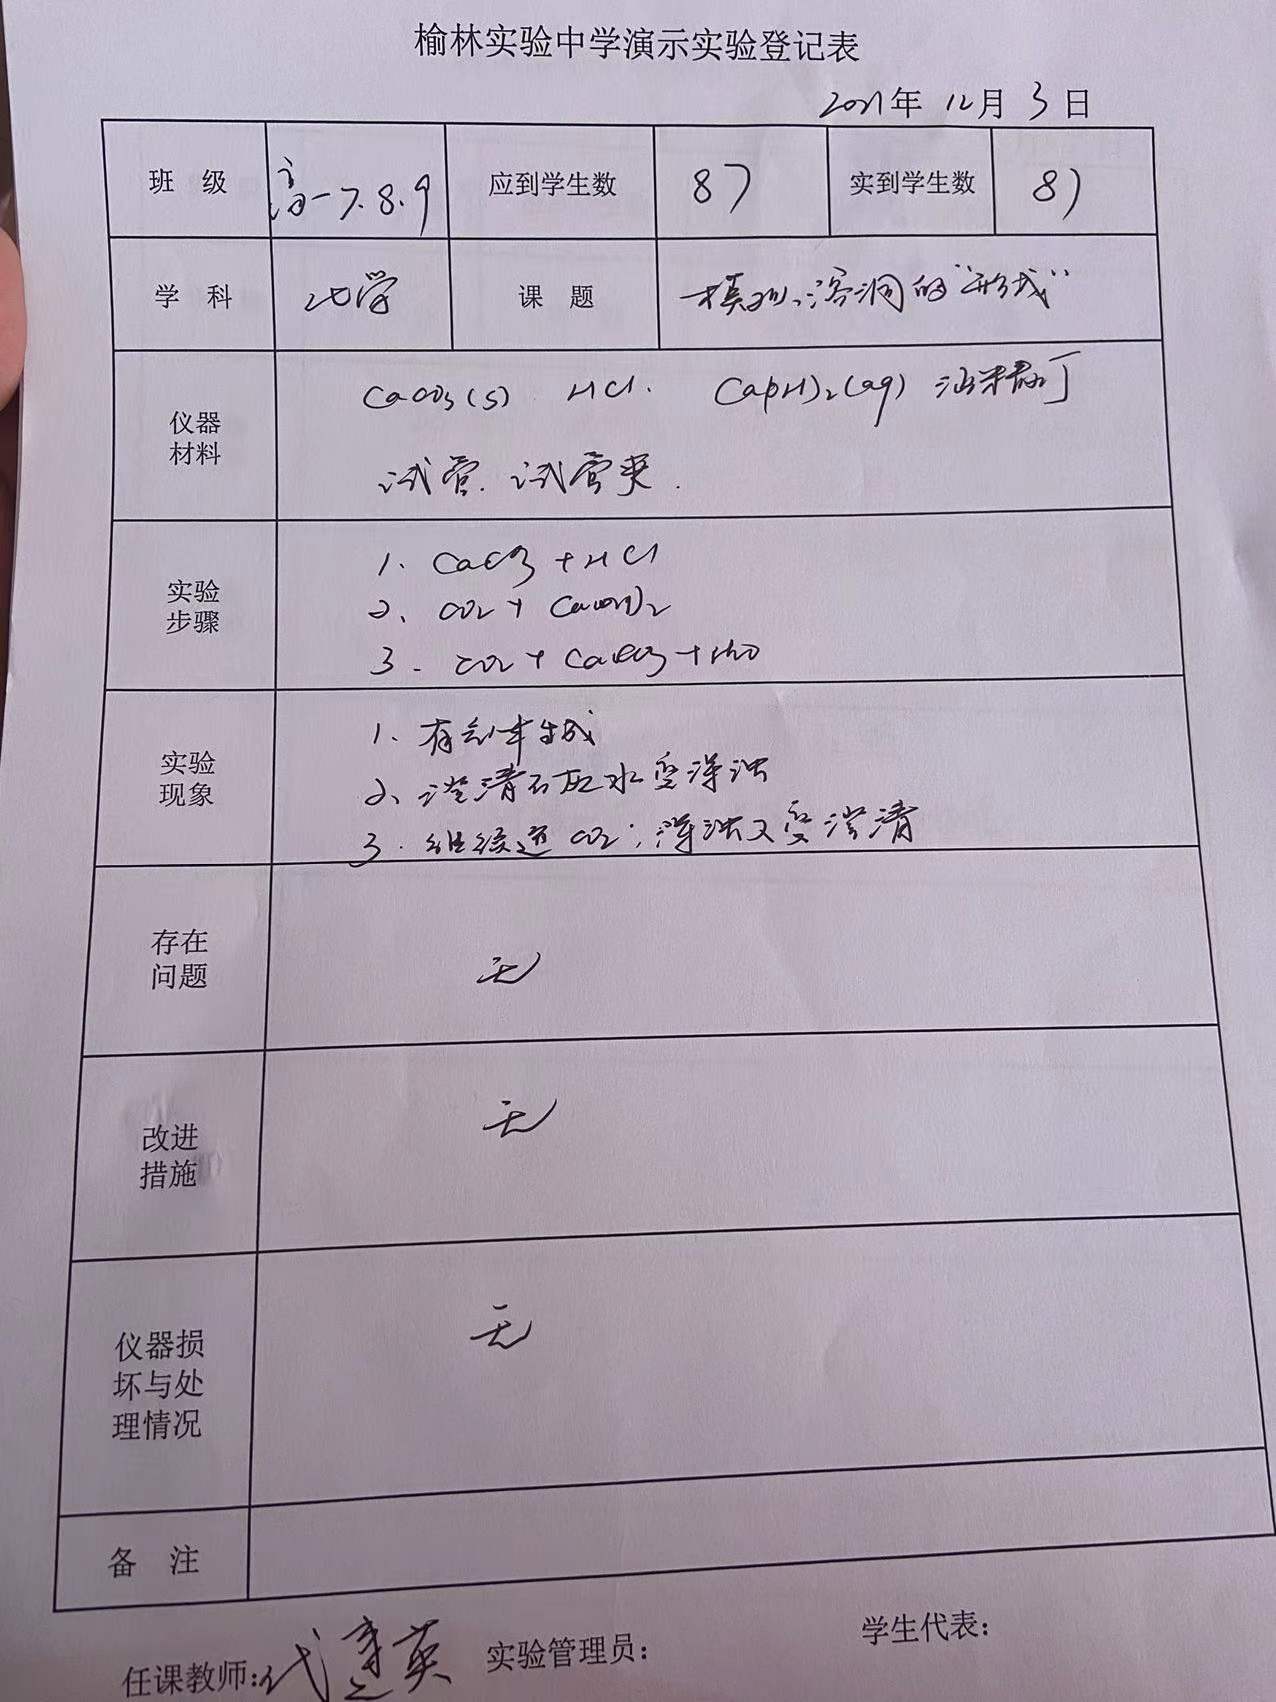 榆林实验中学演示实验登记表
2021年 12月 3日
班 级 高一7.8.9 应到学生数 87 实到学生数 87
学 科 化学 课 题 模拟溶洞的"形成"
仪器材料
CaCO3(s) HCl. Ca(OH)2(aq)
试管. 试管夹.
实验步骤
1. CaCO3 + HCl
2、CO2 + Ca(OH)2
3. CO2 + CaCO3 + H2O
实验现象
1、有气体生成
2、澄清石灰水变浑浊
3. 继续通CO2;浑浊又变澄清
存在问题
无
改进措施
无
仪器损坏与处理情况
无
备 注
任课教师: 英 实验管理员: 学生代表: